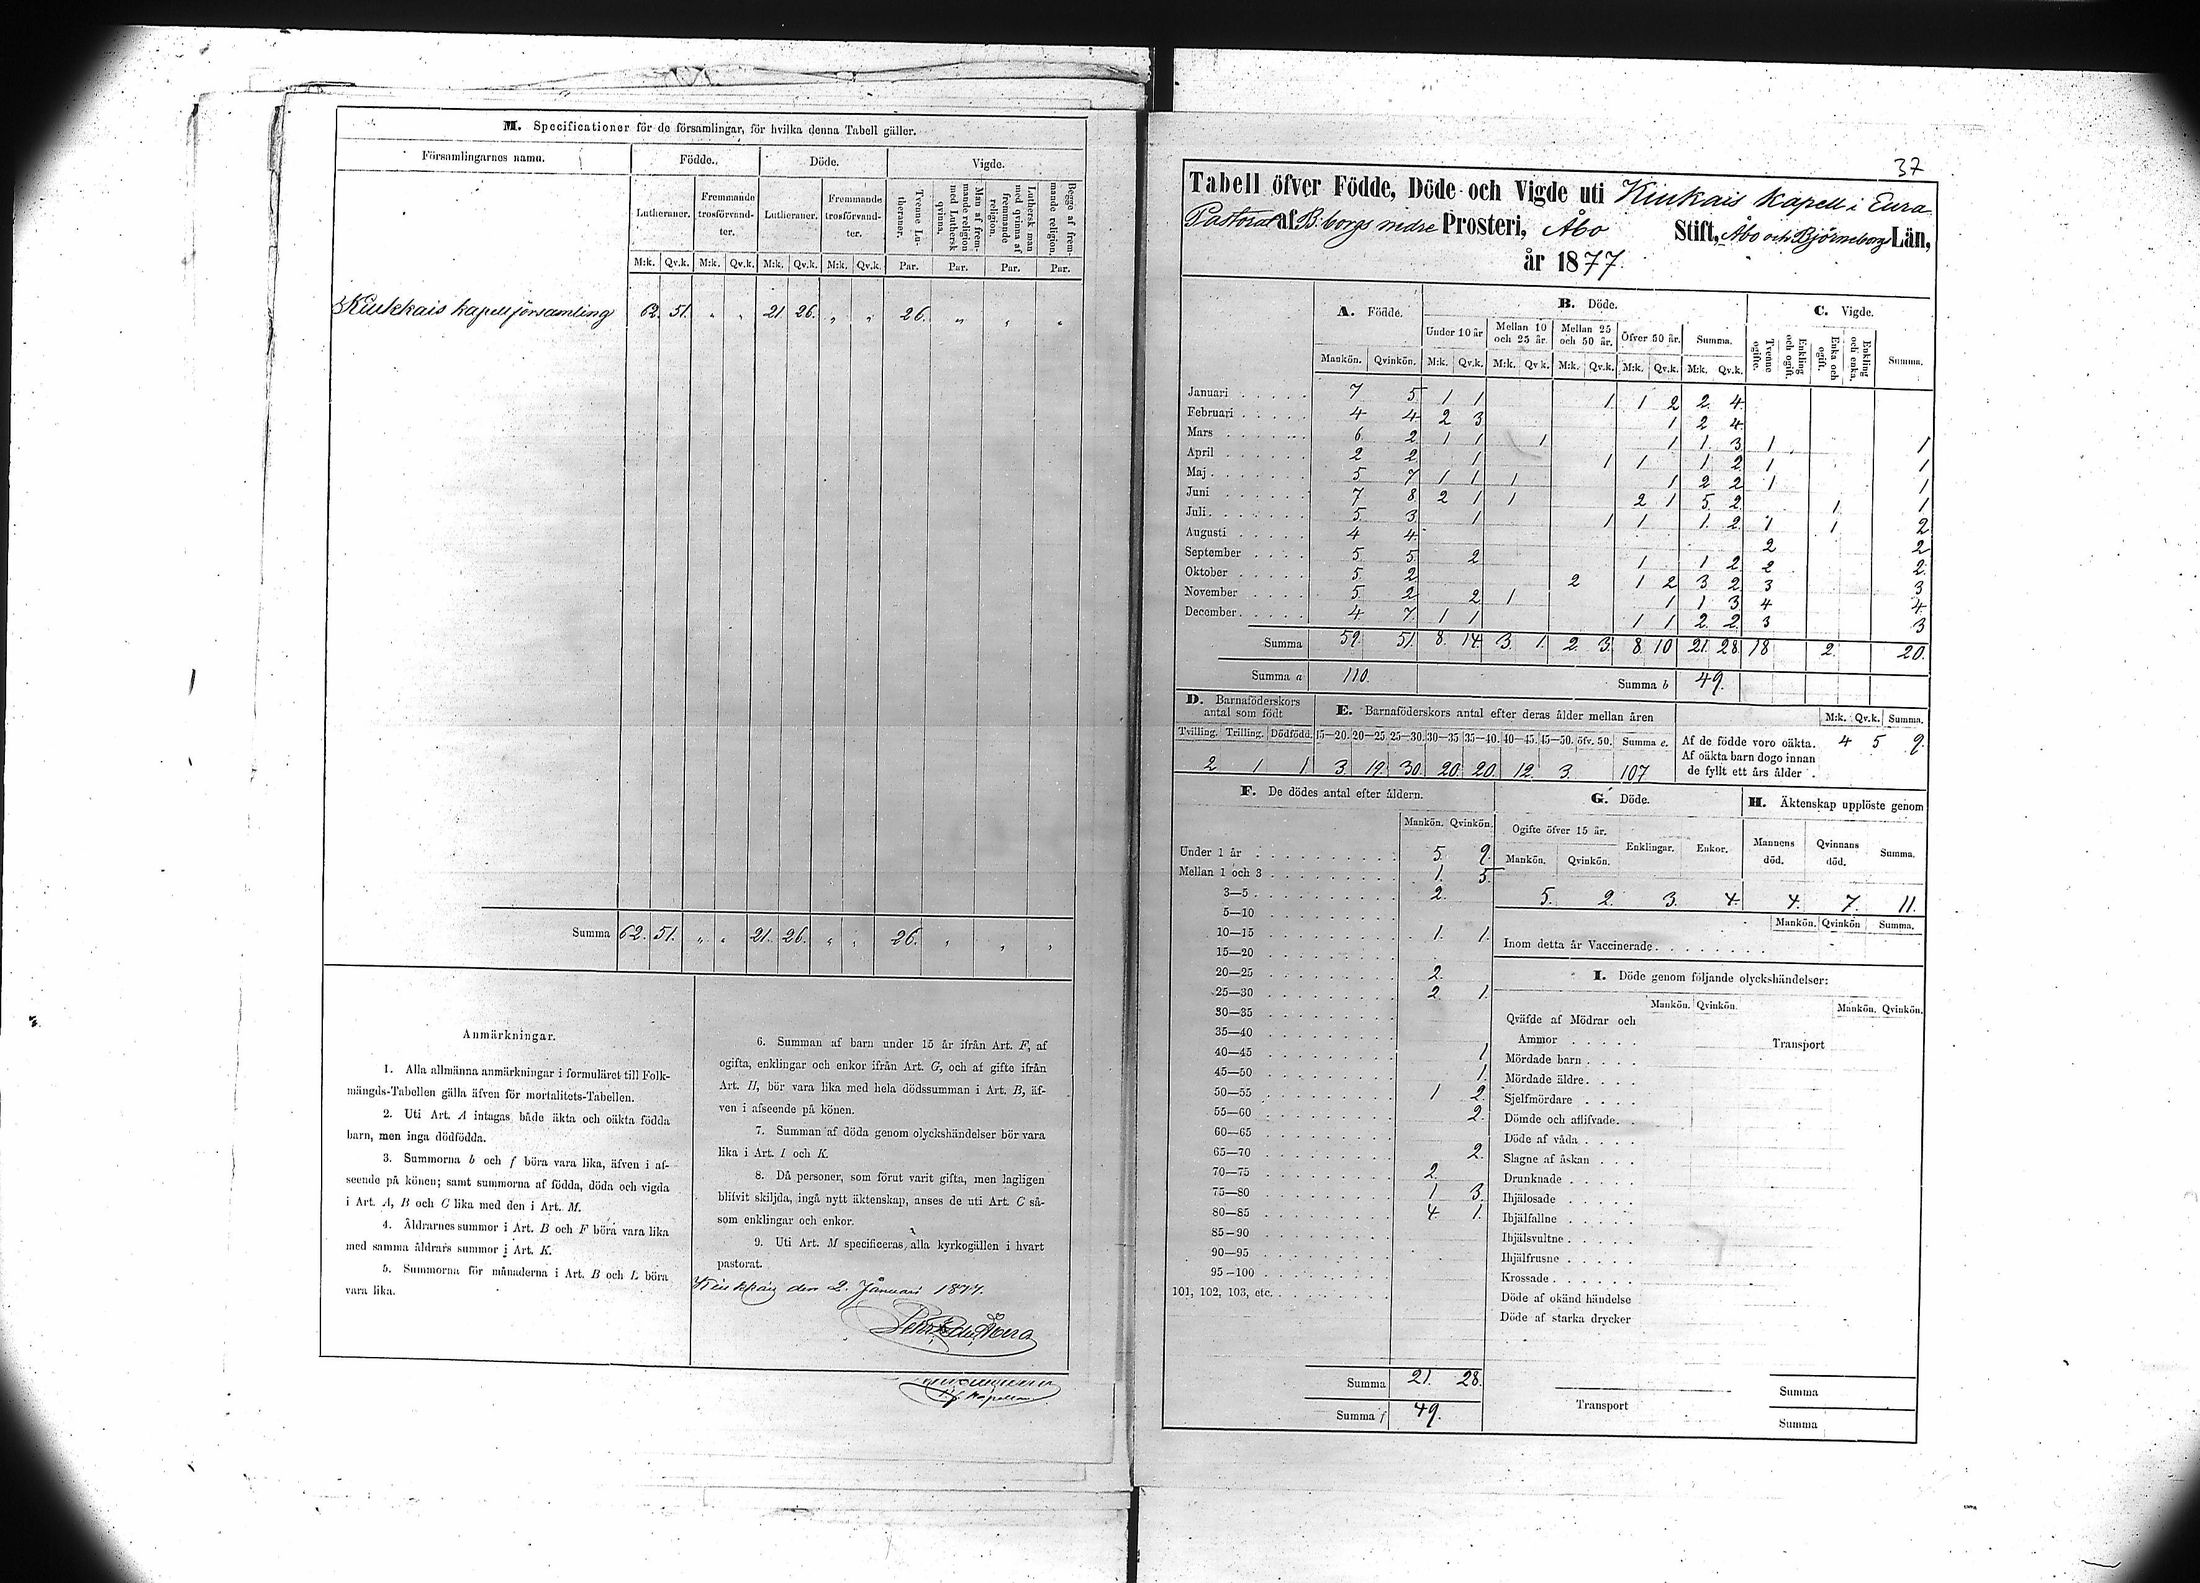 M. Specificationer för de församlingar, för hvilka denna Tabell gäller.
Församlingarnes namn. Födde. Döde. Vigde.
Lutheraner. Fremmande trosförvand-ter. Lutheraner. Fremmande trosförvand-ter. Tvenne Lu-theraner. Man af frem-mande religion med Luthersk qvinna. Luthersk man med qvinna af fremmande religion. Begge af frem-mande religion.
M:k. Qv.k. M:k. Qv.k. M:k. Qv.k. M:k. Qv.k. Par. Par. Par. Par.
Kiukkais kapellförsamling 62. 51. „ „ 21. 26. „ „ 26. „ „ „
Summa 62. 51. „ „ 21. 26. „ „ 26. „ „ „
Anmärkningar.
1. Alla allmänna anmärkningar i formuläret till Folk-
mängds-Tabellen gälla äfven för mortalitets-Tabellen.
2. Uti Art. A intagas både äkta och oäkta födda
barn, men inga dödfödda.
3. Summorna b och f böra vara lika, äfven i af-
seende på könen; samt summorna af födda, döda och vigda
i Art. A, B och C lika med den i Art. M.
4. Åldrarnes summor i Art. B och F böra vara lika
med samma åldrars summor i Art. K.
5. Summorna för månaderna i Art. B och L böra
vara lika.
6. Summan af barn under 15 år ifrån Art. F, af
ogifta, enklingar och enkor ifrån Art. G, och af gifte ifrån
Art. H, bör vara lika med hela dödssumman i Art. B, äf-
ven i afseende på könen.
7. Summan af döda genom olyckshändelser bör vara
lika i Art. I och K.
8. Då personer, som förut varit gifta, men lagligen
blifvit skiljda, ingå nytt äktenskap, anses de uti Art. C så-
som enklingar och enkor.
9. Uti Art. M specificeras alla kyrkogällen i hvart
pastorat.
Kiukkais den 2. Januari 1877.
37
Tabell öfver Födde, Döde och Vigde uti Kiukais kapell i Eura
Pastorat af B:borgs nedre Prosteri, Åbo Stift, Åbo och Björneborgs Län,
år 1877.
A. Födde. B. Döde. C. Vigde.
Under 10 år Mellan 10 och 25 år. Mellan 25 och 50 år. Öfver 50 år. Summa. Tvenne ogifte. Enkling och ogift. Enka och ogift. Enkling och enka. Summa.
Mankön. Qvinkön. M:k. Qv.k. M:k. Qv.k. M:k. Qv.k. M:k. Qv.k. M:k. Qv.k.
Januari 7 5 1 1 1 1 2 2 4
Februari 4 4 2 3 1 2 4
Mars 6 2 1 1 1 1 1 3 1 1
April 2 2 1 1 1 1 2 1 1
Maj 5 7 1 1 1 1 2 2 1 1
Juni 7 8 2 1 1 2 1 5 2 1 1
Juli 5 3 1 1 1 1 2 1 1 2
Augusti 4 4 2 2
September 5 5 2 1 1 2 2 2
Oktober 5 2 2 1 2 3 2 3 3
November 5 2 2 1 1 1 3 4 4
December 4 7 1 1 1 1 2 2 3 3
Summa 59. 51. 8. 14. 3. 1. 2. 3. 8. 10 21. 28. 18 2. 20.
Summa a 110. Summa b 49.
D. Barnaföderskors antal som födt
E. Barnaföderskors antal efter deras ålder mellan åren
M:k. Qv.k. Summa.
Tvilling. Trilling. Dödfödd. 15—20. 20—25. 25—30. 30—35 35—40. 40—45. 45—50. öfv. 50. Summa e.
2 1 1 3. 19. 30. 20. 20. 12. 3. 107
Af de födde voro oäkta. 4 5 9.
Af oäkta barn dogo innan
de fyllt ett års ålder
F. De dödes antal efter åldern.
Mankön. Qvinkön.
Under 1 år 5. 9.
Mellan 1 och 3 1. 5.
3—5 2.
5—10
10—15 1. 1.
15—20
20—25 2.
25—30 2. 1.
30—35
35—40
40—45 1
45—50 1.
50—55 1 2.
55—60 2.
60—65
65—70 2.
70—75 2.
75—80 1 3.
80—85 4. 1.
85—90
90—95
95—100
101, 102, 103, etc.
Summa 21. 28.
Summa f 49.
G. Döde.
Ogifte öfver 15 år. Enklingar. Enkor.
Mankön. Qvinkön.
5. 2. 3. 4.
H. Äktenskap upplöste genom
Mannens död. Qvinnans död. Summa.
4. 7. 11.
Mankön. Qvinkön Summa.
Inom detta år Vaccinerade
I. Döde genom följande olyckshändelser:
Mankön. Qvinkön. Mankön. Qvinkön.
Qväfde af Mödrar och
Ammor Transport
Mördade barn
Mördade äldre
Sjelfmördare
Dömde och aflifvade
Döde af våda
Slagne af åskan
Drunknade
Ihjälosade
Ihjälfallne
Ihjälsvultne
Ihjälfrusne
Krossade
Döde af okänd händelse
Döde af starka drycker
Transport
Summa
Summa